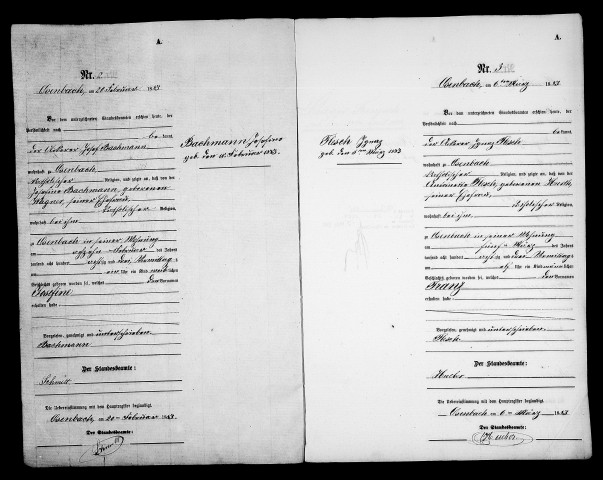 A.
Nr. 2
Osenbach, am 20 Februar 1883
Vor dem unterzeichneten Standesbeamten erschien heute, der
Persönlichkeit nach
bekannt,
der Ackerer Josef Bachmann
wohnhaft zu Osenbach
katholischer Religion, und zeigte an, daß von der
Josefina Bachmann, geborenen
Wagner, seiner Ehefrau,
katholischer Religion,
wohnhaft bei ihm
zu Osenbach in seiner Wohnung
am Februar des Jahres
tausend acht hundert achtzig und drei Vormittags
um Uhr ein Kind
Geschlechts geboren worden sei, welches den Vornamen
Josefine
erhalten habe.
Vorgelesen, genehmigt und unterschrieben
Bachmann
Der Standesbeamte:
Schmitt
Die Uebereinstimmung mit dem Hauptregister beglaubigt.
Osenbach, am 20 Februar 1883
Der Standesbeamte:
Bachmann Josefine
geb. den Februar 1883.
A.
Nr. 3
Osenbach, am 6 ten März 1883
Vor dem unterzeichneten Standesbeamten erschien heute, der
Persönlichkeit nach
bekannt,
der Ackerer Ignaz Flesch
wohnhaft zu Osenbach
katholischer Religion, und zeigte an, daß von der
Flesch, geborenen
seiner Ehefrau,
katholischer Religion,
wohnhaft bei ihm
zu Osenbach in seiner Wohnung
am fünf März des Jahres
tausend acht hundert achtzig und drei Vormittags
um Uhr ein Kind
Geschlechts geboren worden sei, welches den Vornamen
erhalten habe.
Vorgelesen, genehmigt und unterschrieben
Flesch
Der Standesbeamte:
Die Uebereinstimmung mit dem Hauptregister beglaubigt.
Osenbach, am 6 März 1883
Der Standesbeamte:
Flesch Ignaz
geb. den März 1883